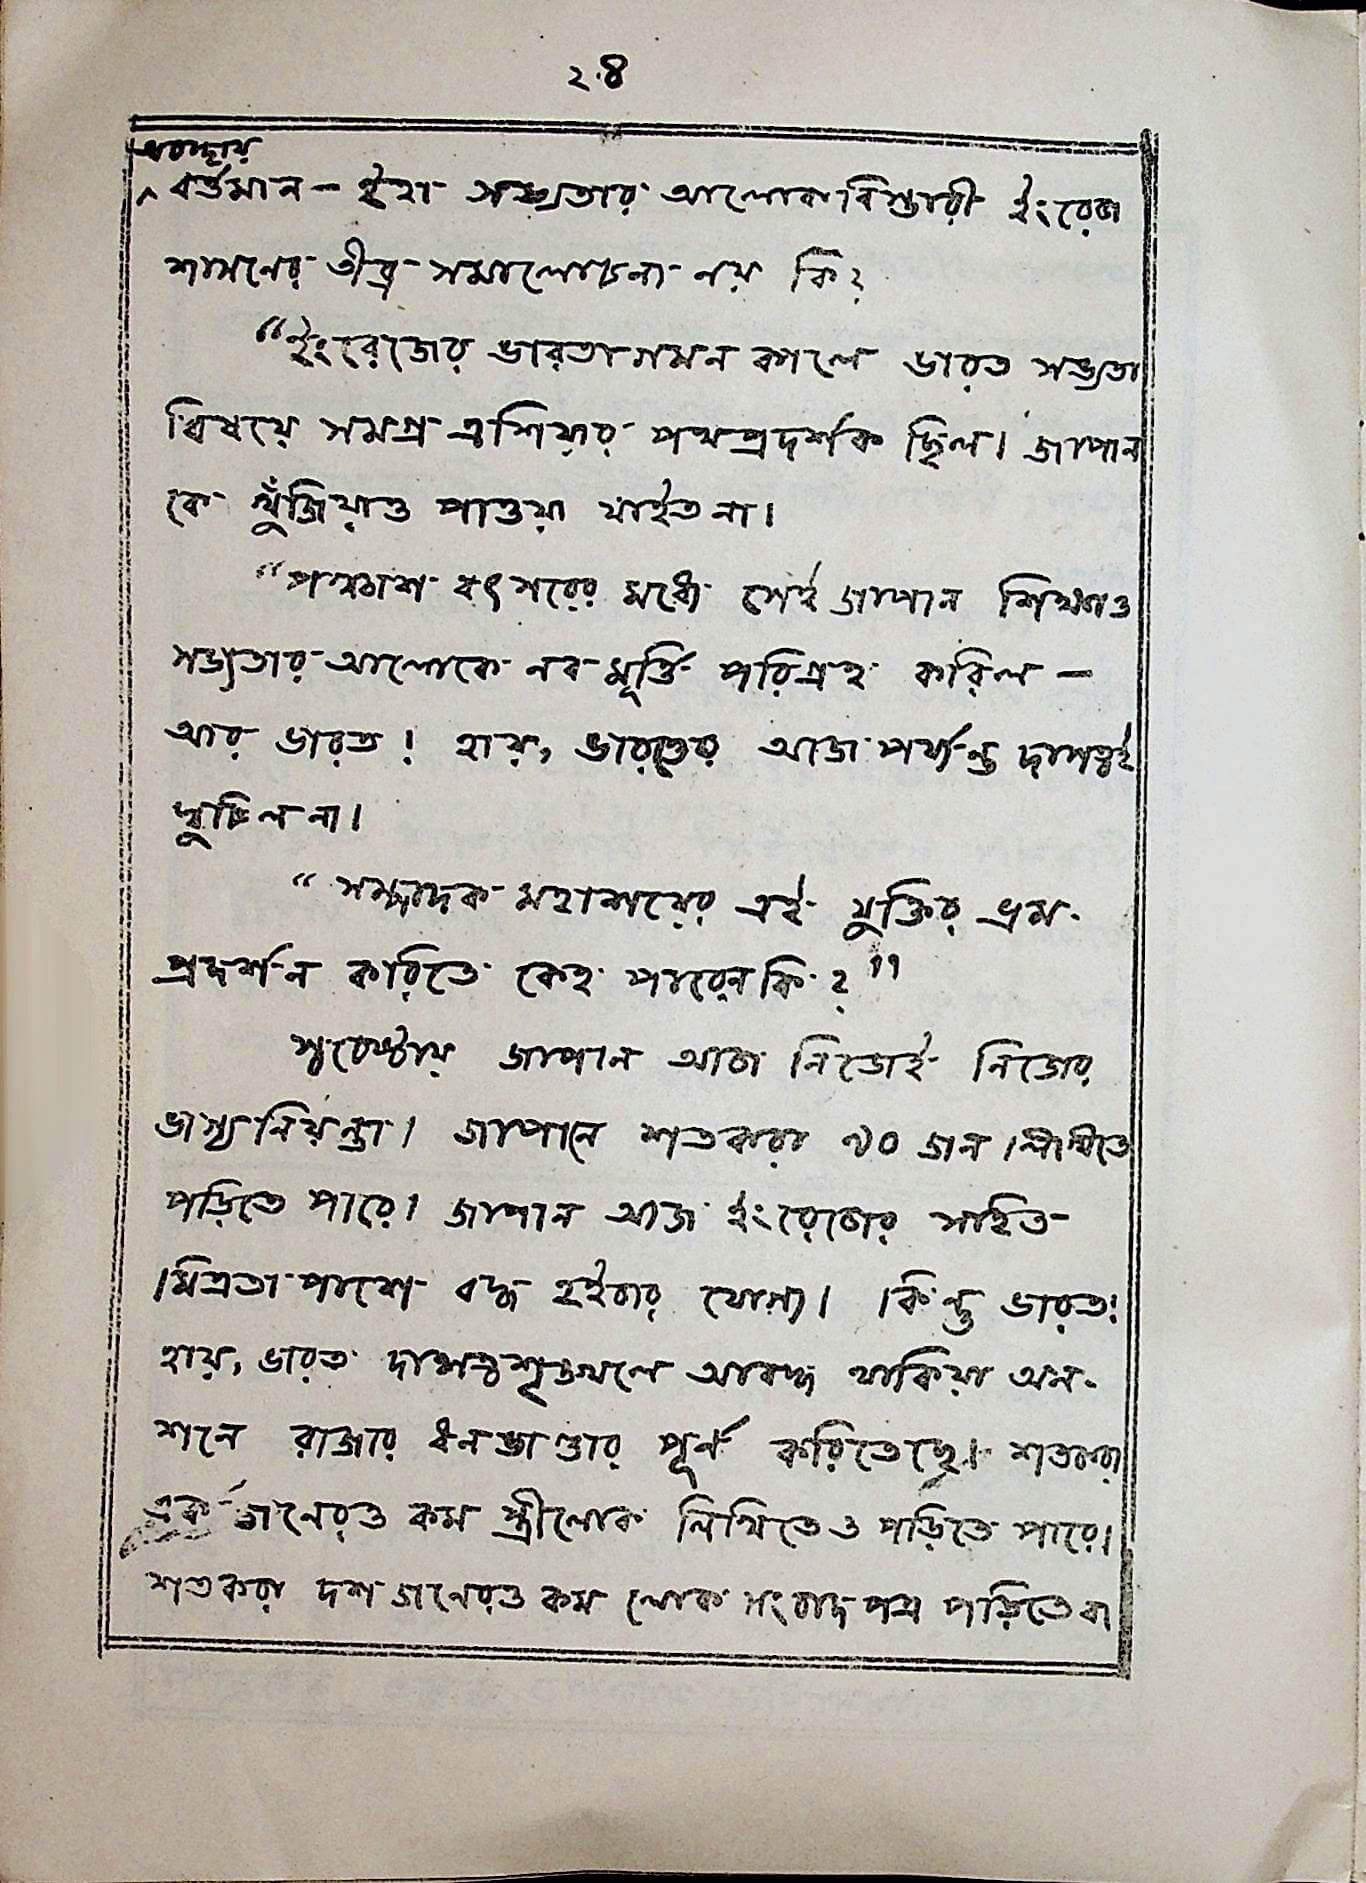 ২৪
অবস্থায়
^ বর্ত্তমান – ইহা সভ্যতার আলোক বিস্তারী ইংরেজ
শাসনের তীব্র সমালোচনা নয় কি?
“ইংরেজের ভারতাগমন কালে ভারত সভ্যতা
বিষয়ে সমগ্র এশিয়ার পথপ্রদর্শক ছিল। জাপান
কে খুঁজিয়াও পাওয়া যাইত না।
“পঞ্চাশ বৎসরের মধ্যে সেই জাপান শিক্ষা ও
সভ্যতার আলোকে নব মূর্ত্তি পরিগ্রহ করিল –
আর ভারত! হায়, ভারতের আজ পর্য্যন্ত দাসত্বই
ঘুচিল না।
“সম্পাদক মহাশয়ের এই যুক্তির ভ্রম
প্রদর্শন করিতে কেহ পারেন কি?”
স্বচেষ্টায় জাপান আজ নিজেই নিজের
ভাগ্যনিয়ন্তা। জাপানে শতকরা ৯০ জন লিখিতে
পড়িতে পারে। জাপান আজ ইংরেজের সহিত
মিত্রতা পাশে বদ্ধ হইবার যোগ্য। কিন্তু ভারত!
হায়, ভারত দাসত্বশৃঙ্খলে আবদ্ধ থাকিয়া অন-
শনে রাজার ধনভাণ্ডার পূর্ণ করিতেছে। শতকরা
এক জনেরও কম স্ত্রীলোক লিখিতে ও পড়িতে পারে।
শতকরা দশ জনেরও কম লোক সংবাদ পত্র পড়িতে বা